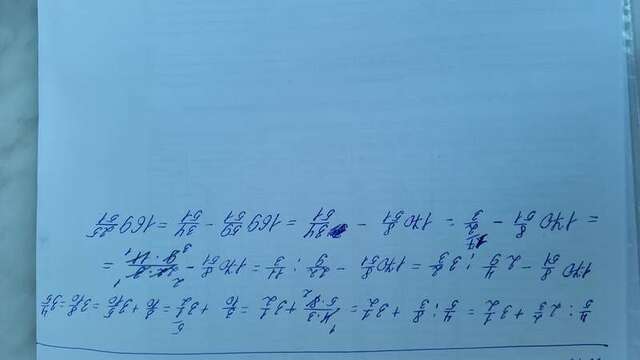 4/5 : 2 2/3 + 3 1/2 = 4/5 : 8/3 + 3 1/2 = 4·3/5·8 + 3 1/2 = 3/10 + 3 1/2 = 3/10 + 3 5/10 = 3 8/10 = 3 4/5
170 8/51 - 2 4/9 : 3 2/3 = 170 8/51 - 22/9 : 11/3 = 170 8/51 - 22·3/9·11 =
= 170 8/51 - 2/3 = 170 8/51 - 34/51 = 169 59/51 - 34/51 = 169 25/51